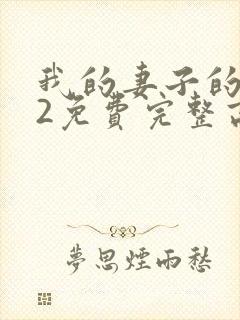 我的妻子的
2免费完整
夢思煙雨愁